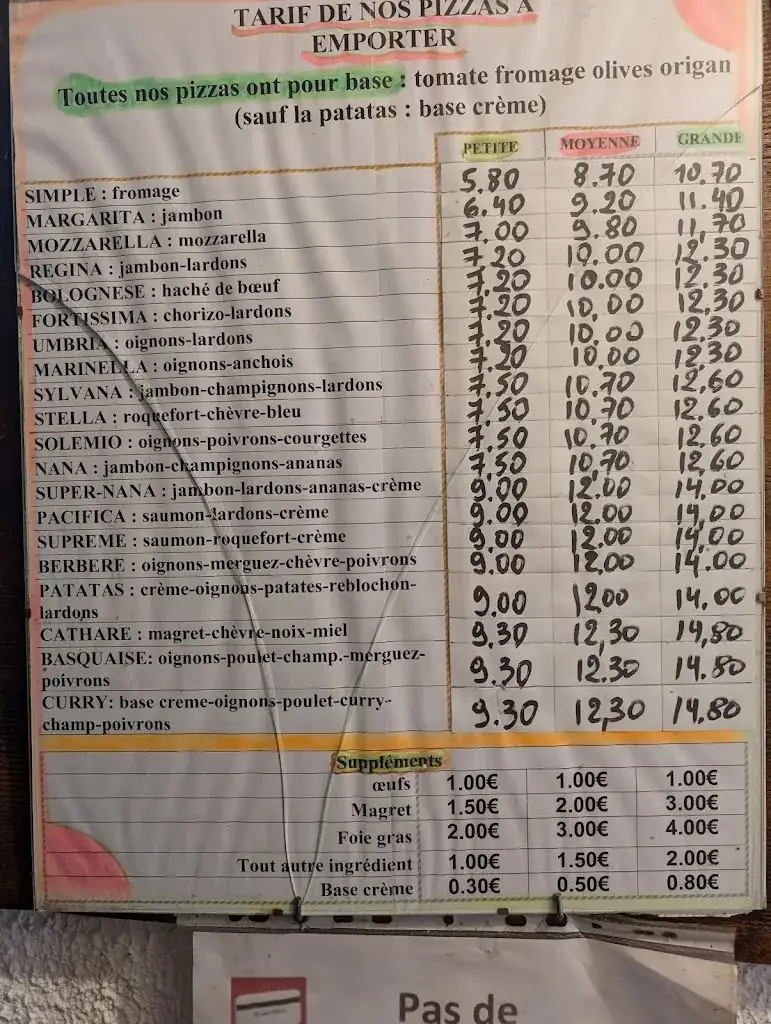 TARIF DE NOS PIZZAS A
EMPORTER
Toutes nos pizzas ont pour base : tomate fromage olives origan
(sauf la patatas : base crème)
PETITE MOYENNE GRANDE
SIMPLE : fromage 5.80 8.70 10.70
MARGARITA : jambon 6.40 9.20 11.40
MOZZARELLA : mozzarella 7.00 9.80 11,70
REGINA : jambon-lardons 7.20 10.00 12.30
BOLOGNESE : haché de bœuf 7,20 10.00 12.30
FORTISSIMA : chorizo-lardons 7,20 10,00 12,30
UMBRIA : oignons-lardons 7,20 10.00 12,30
MARINELLA : oignons-anchois 7.20 10.00 12.30
SYLVANA : jambon-champignons-lardons 7.50 10.70 12,60
STELLA : roquefort-chèvre-bleu 7.50 10.70 12.60
SOLEMIO : oignons-poivrons-courgettes 7.50 10.70 12.60
NANA : jambon-champignons-ananas 7.50 10.70 12,60
SUPER-NANA : jambon-lardons-ananas-crème 9.00 12.00 14.00
PACIFICA : saumon-lardons-crème 9.00 12.00 14,00
SUPREME : saumon-roquefort-crème 9.00 12.00 14.00
BERBERE : oignons-merguez-chèvre-poivrons 9.00 12.00 14.00
PATATAS : crème-oignons-patates-reblochon-
lardons 9.00 1200 14.00
CATHARE : magret-chèvre-noix-miel 9.30 12,30 14,80
BASQUAISE: oignons-poulet-champ.-merguez-
poivrons 9.30 12.30 14.80
CURRY: base creme-oignons-poulet-curry-
champ-poivrons 9.30 12,30 14.80
Suppléments
œufs 1.00€ 1.00€ 1.00€
Magret 1.50€ 2.00€ 3.00€
Foie gras 2.00€ 3.00€ 4.00€
Tout autre ingrédient 1.00€ 1.50€ 2.00€
Base crème 0.30€ 0.50€ 0.80€
Pas de